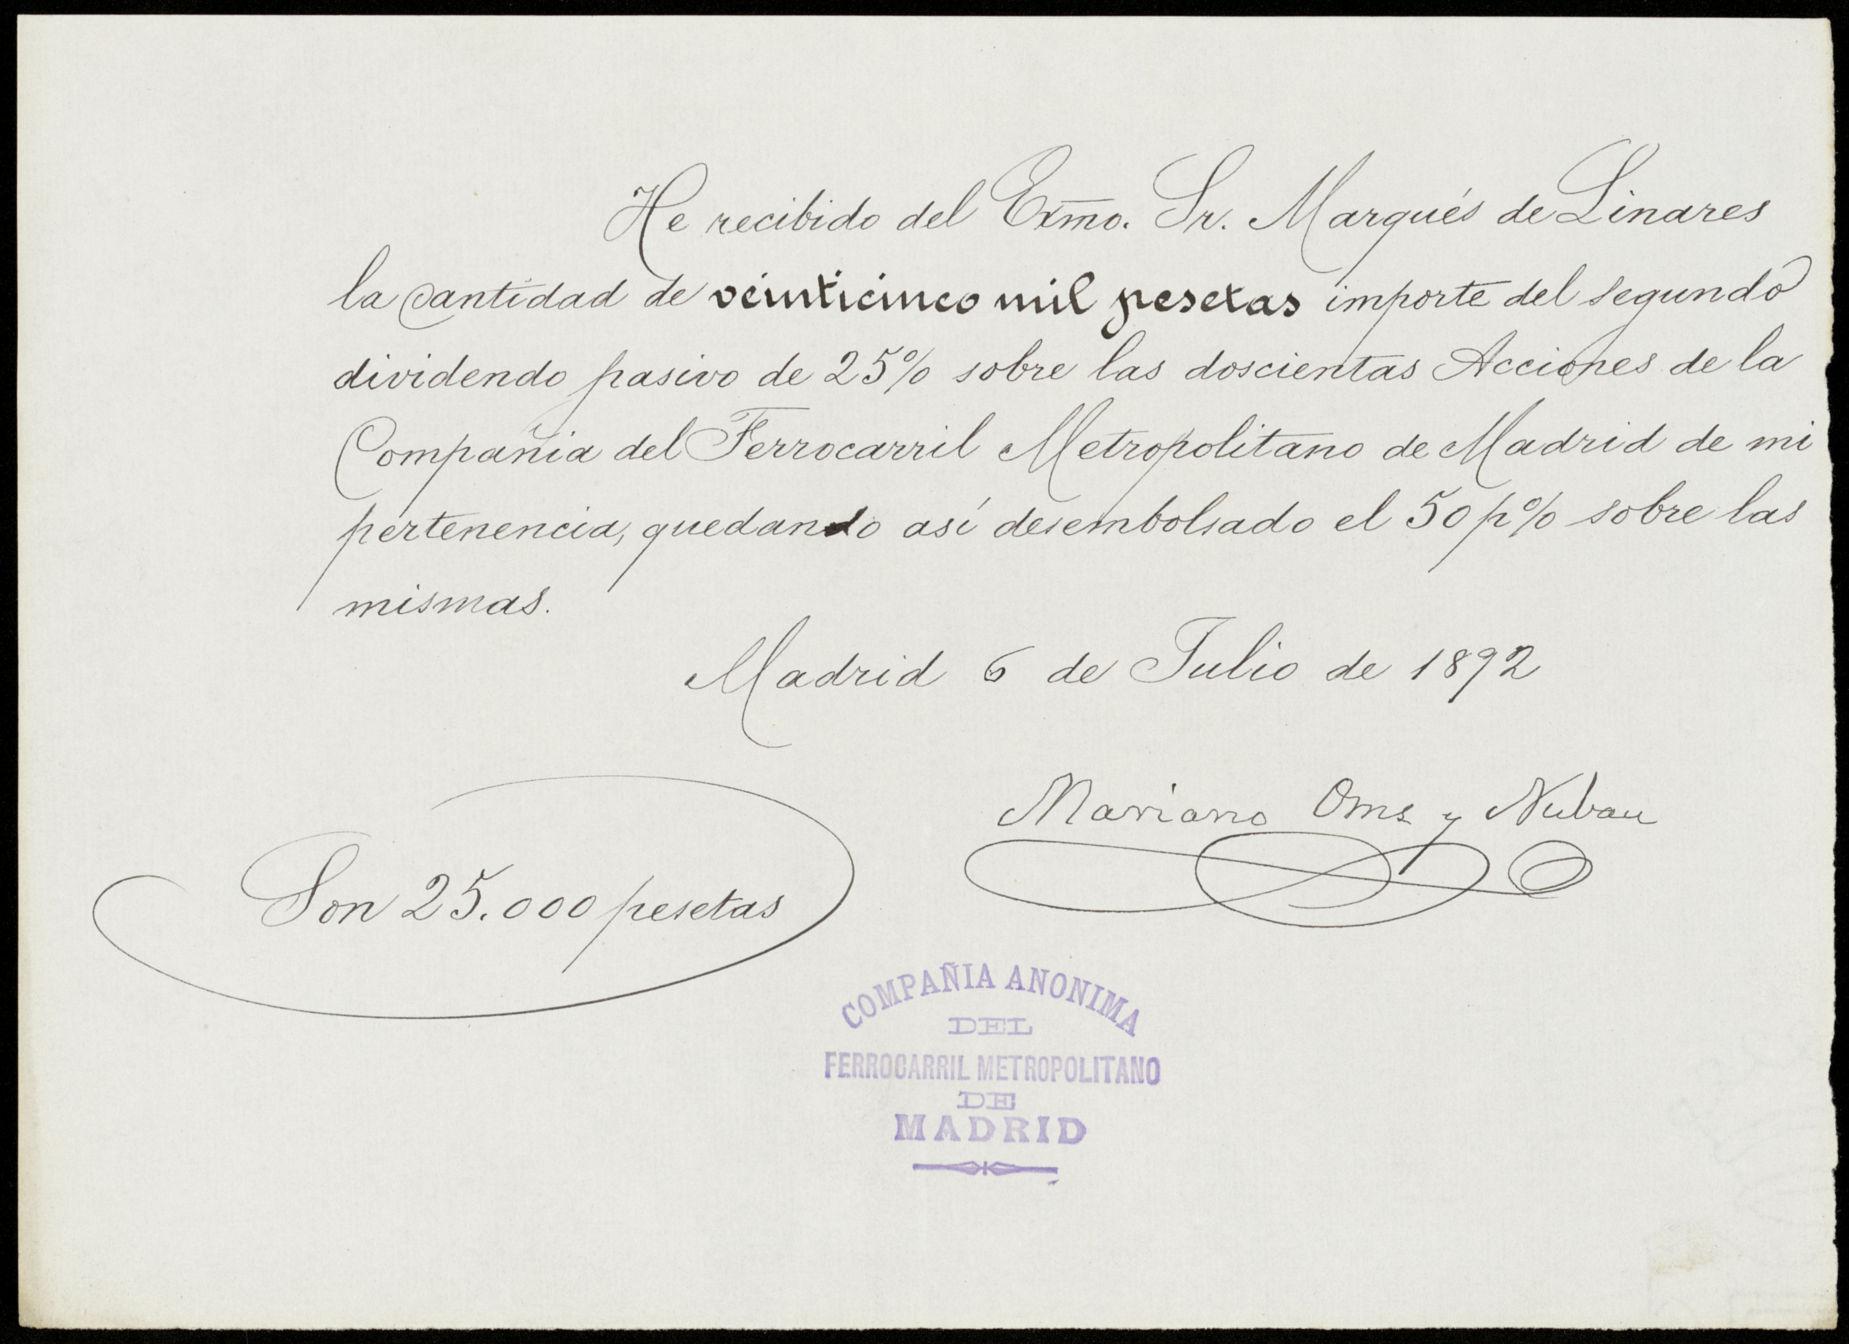 He recibido del Exmo. Sr. Marqués de Linares
la cantidad de veinticinco mil pesetas importe del segundo
dividendo pasivo de 25% sobre las doscientas Acciones de la
Compañia del Ferrocarril Metropolitano de Madrid de mi
pertenencia, quedando así desembolsado el 50 p% sobre las
mismas.
Madrid 6 de Julio de 1892
Mariano Oms y Nubau
Son 25.000 pesetas
COMPAÑIA ANONIMA
DEL
FERROCARRIL METROPOLITANO
DE
MADRID